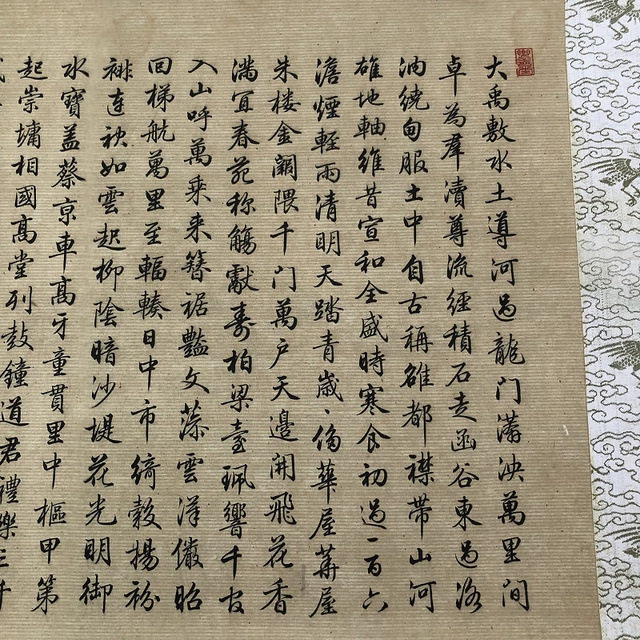 大禹敷水土導河過龍門滿泱萬里間
卓為羣瀆尊流經積石走函谷東過洛
汭繞甸服土中自古稱雒都襟帶山河
雄地軸維昔宣和全盛時寒食初過一百六
澹煙輕雨清明天踏青歲、侈華屋華屋
朱楼金闕隈千門萬户天邊開飛花香
滿宜春苑称觴獻壽柏梁臺珮響千官
入山呼萬乗来簪裾豔文藻雲漢儼昭
回梯航萬里至輻輳日中市綺縠揚衯
裶連袂如雲起柳陰暗沙堤花光明御
水寶盖蔡京車高牙童貫里中樞甲第
起崇墉相國高堂列鼓鐘道君禮樂三千